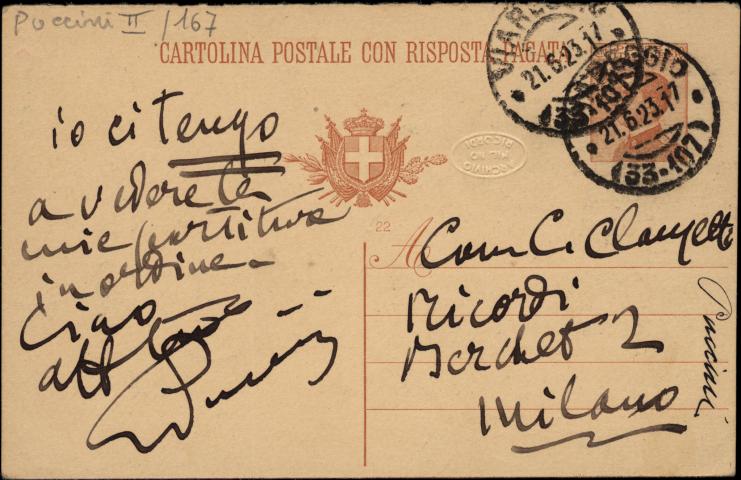 Puccini II / 167
CARTOLINA POSTALE CON RISPOSTA PAGATA
VIAREGGIO
21.6.23.17
VIAREGGIO
21.6.23.17
(33-107)
ARCHIVIO
RICORDI
io ci tengo
a vedere le
mie partiture
in ordine.
Ciao
aff
Puccini
22
A Com C. Clausetti
Ricordi
Berchet 2
Milano
Puccini